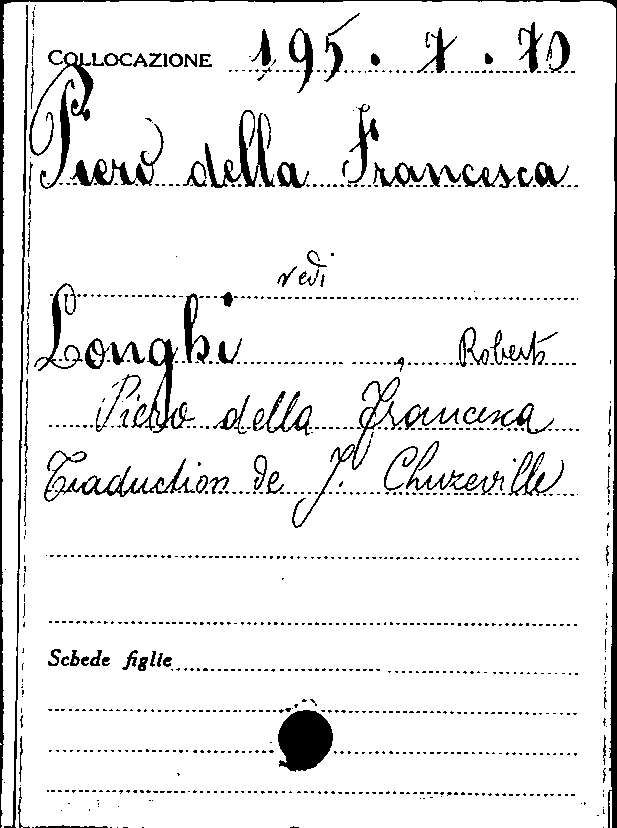 COLLOCAZIONE 195.7.70
Piero della Francesca
vedi
Longhi, Roberto
Piero della Francesca
Traduction de J. Chuzeville
Schede figlie